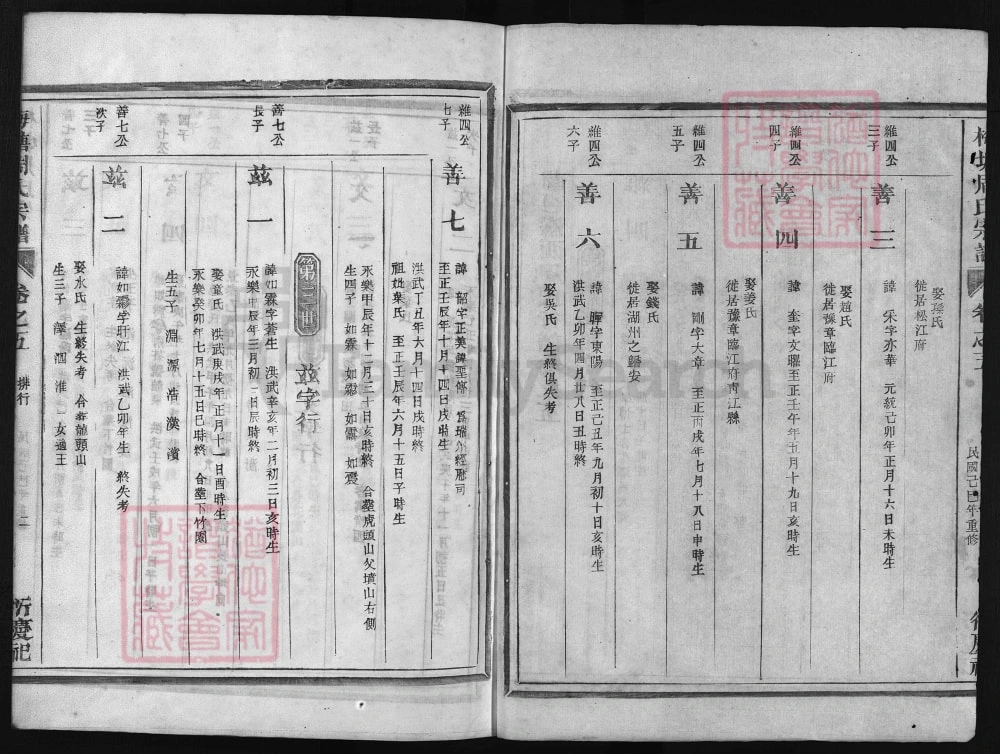 民國己巳年重修
娶孫氏
徙居松江府
維四公
三子
善三
諱 宋字亦華 元統己卯年正月十六日未時生
娶趙氏
徙居豫章臨江府
維四公
四子
善四
諱 奎字文曜至正壬午年五月十九日亥時生
娶姜氏
徙居豫章臨江府靑江縣
維四公
五子
善五
諱 剛字大章 至正丙戌年七月十八日申時生
娶錢氏
徙居湖州之歸安
維四公
六子
善六
諱 暉字東陽 至正己丑年九月初十日亥時生
洪武乙卯年四月廿八日丑時終
娶吳氏 生終俱失考
維四公
七子
善七
諱 韶字正美
至正壬辰年十月十四日戌時生
洪武丁丑年六月十四日戌時終
祖妣葉氏 至正壬辰年六月十五日子時生
永樂甲辰年十二月三十日亥時終 合塟虎頭山父墳山右側
生四子 如霖 如 如 如震
茲字行
善七公
長子
茲一
諱如霖字蒼生 洪武辛亥年二月初三日亥時生
永樂甲辰年三月初二日辰時終
娶童氏 洪武庚戌年正月十一日酉時生
永樂癸卯年七月十五日巳時終 合塟下竹園
生五子 淵 源 浩 漢 濱
善七公
次子
茲二
諱如 字旴江 洪武乙卯年生 終失考
娶水氏 生終失考 合塟龍頭山
生三子 深 泗 淮 女適王
卷之五
排行
二
衍慶祀